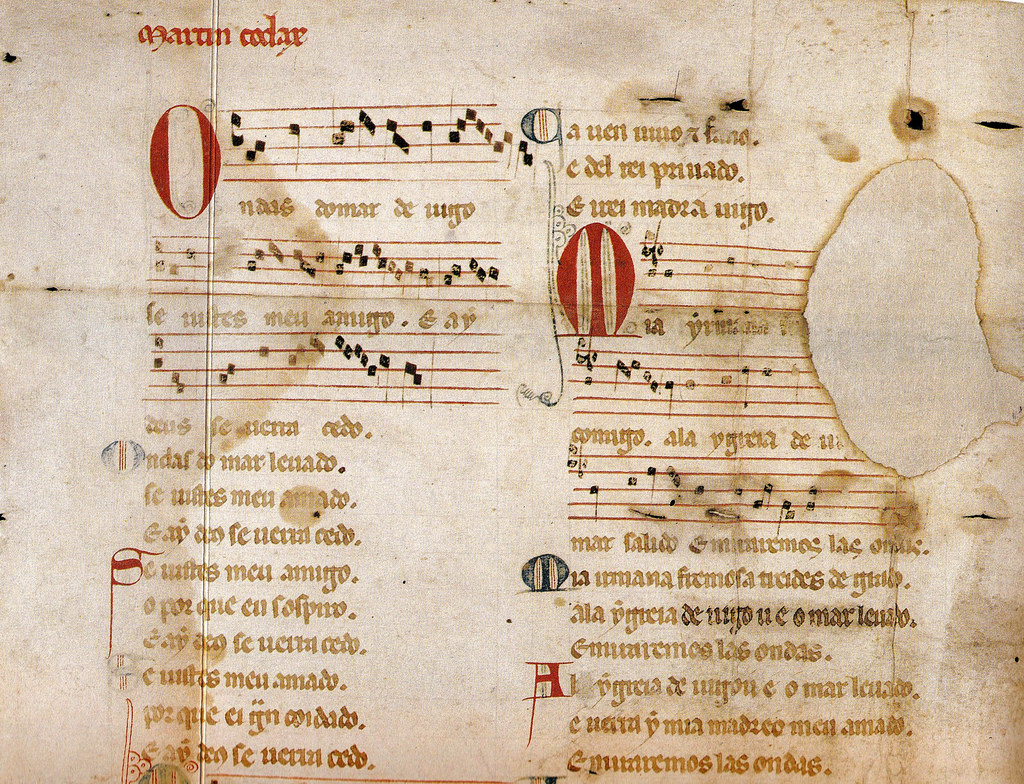 martin codax
Ondas do mar de uigo
se uistes meu amigo. E ay
deus se uerra cedo.
Ondas do mar leuado.
se uistes meu amado.
E aẏ deo se uerra cedo.
Se uistes meu amigo.
o por que eu sospiro.
E aẏ deo se uerra cedo.
Se uistes meu amado.
por que ei g̃n coidado.
E aẏ deo se uerra cedo.
Ca uen uiuo ⁊ sano.
E del rei priuado.
E irei madr a uigo.
Mia
comigo. a la ygreia de
mar salido E miraremos las ondas.
Mia irmana fremosa treides de grado.
a la ẏgreia de uigo u e o mar leuado.
E miraremos las ondas.
A la ẏgreia de uigo u e o mar leuado.
e uerra ẏ mia madre o meu amado.
E miraremos las ondas.